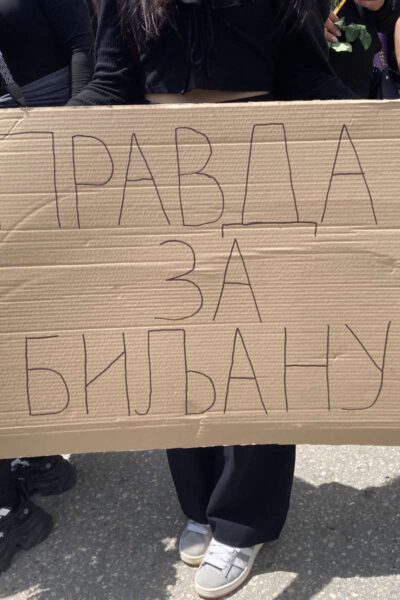 ПРАВДА
ЗА
БИЉАНУ